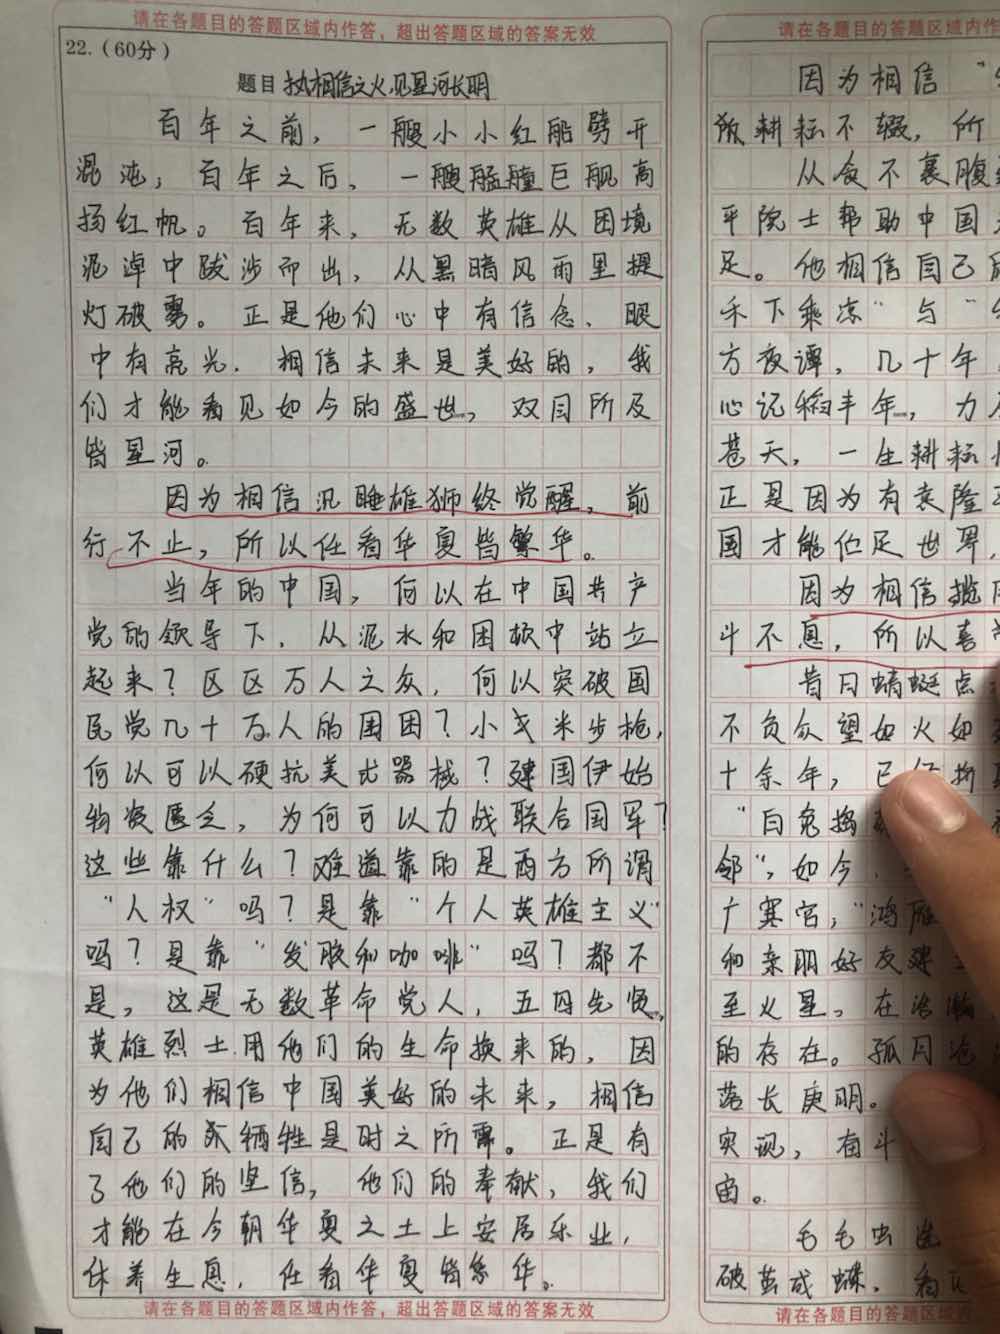 请在各题目的答题区域内作答，超出答题区域的答案无效
22.（60分）
题目 执相信之火，见星河长明
百年之前，一艘小小红船劈开
混沌；百年之后，一艘艨艟巨舰高
扬红帆。百年来，无数英雄从困境
泥淖中跋涉而出，从黑暗风雨里提
灯破雾。正是他们心中有信念、眼
中有亮光、相信未来是美好的，我
们才能看见如今的盛世，双目所及
皆星河。
因为相信沉睡雄狮终觉醒，前
行不止，所以任看华夏皆繁华。
当年的中国，何以在中国共产
党的领导下，从泥水和困顿中站立
起来？区区万人之众，何以突破国
民党几十万人的围困？小戈米步枪，
何以可以硬抗美式器械？建国伊始
物资匮乏，为何可以力战联合国军？
这些靠什么？难道靠的是西方所谓
“人权”吗？是靠“个人英雄主义”
吗？是靠“发胶和咖啡”吗？都不
是，这是无数革命党人，五四先贤，
英雄烈士用他们的生命换来的，因
为他们相信中国美好的未来，相信
自己的牺牲是时之所需。正是有
了他们的坚信，他们的奉献，我们
才能在今朝华夏之土上安居乐业，
休养生息，任看华夏皆繁华。
请在各题目的答题区域内作答，超出答题区域的答案无效
请在各题目的答题区域内作
因为相信“
耕耘不辍，所
从食不裹腹
平院士帮助中国
足。他相信自己
禾下乘凉”与“
方夜谭，几十年
心记稻丰年，力
苍天，一生耕耘
正是因为有袁隆
国才能位足世界，
因为相信揽月
斗不息，所以喜
昔日蜻蜓点
不负众望如火如
十余年，已
“白兔捣
邻”，如今，
广寒宫，“鸿雁
和亲朋好友建
至火星，在浩瀚
的存在。孤月沧
落长庚明。
实现，奋斗
宙。
毛毛虫
破茧成蝶，
请在各题目的答题区域内